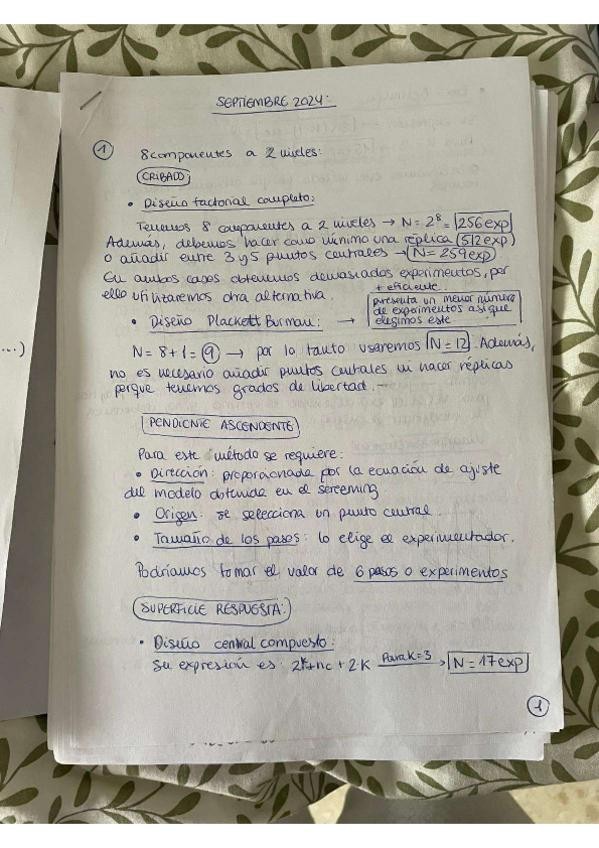 SEPTIEMBRE 2024:
1
8 componentes a 2 niveles:
CRIBADO
• Diseño factorial completo:
Tenemos 8 componentes a 2 niveles → N = 2⁸ = 256 exp
Además, debemos hacer como mínimo una réplica (512 exp)
o añadir entre 3 y 5 puntos centrales → N = 259 exp
En ambos casos obtenemos demasiados experimentos, por
ello utilizaremos otra alternativa.
+ eficiente.
• Diseño Plackett Burman: → presenta un menor número
de experimentos así que
elegimos este
N = 8 + 1 = 9 → por lo tanto usaremos N = 12. Además,
no es necesario añadir puntos centrales ni hacer réplicas
porque tenemos grados de libertad.
PENDIENTE ASCENDENTE
Para este método se requiere:
• Dirección: proporcionada por la ecuación de ajuste
del modelo obtenida en el screening
• Origen: se selecciona un punto central.
• Tamaño de los pasos: lo elige el experimentador.
Podríamos tomar el valor de 6 pasos o experimentos
SUPERFICIE RESPUESTA:
• Diseño central compuesto:
Su expresión es: 2ᴷ + nc + 2·K Para K = 3 → N = 17 exp
1
...)